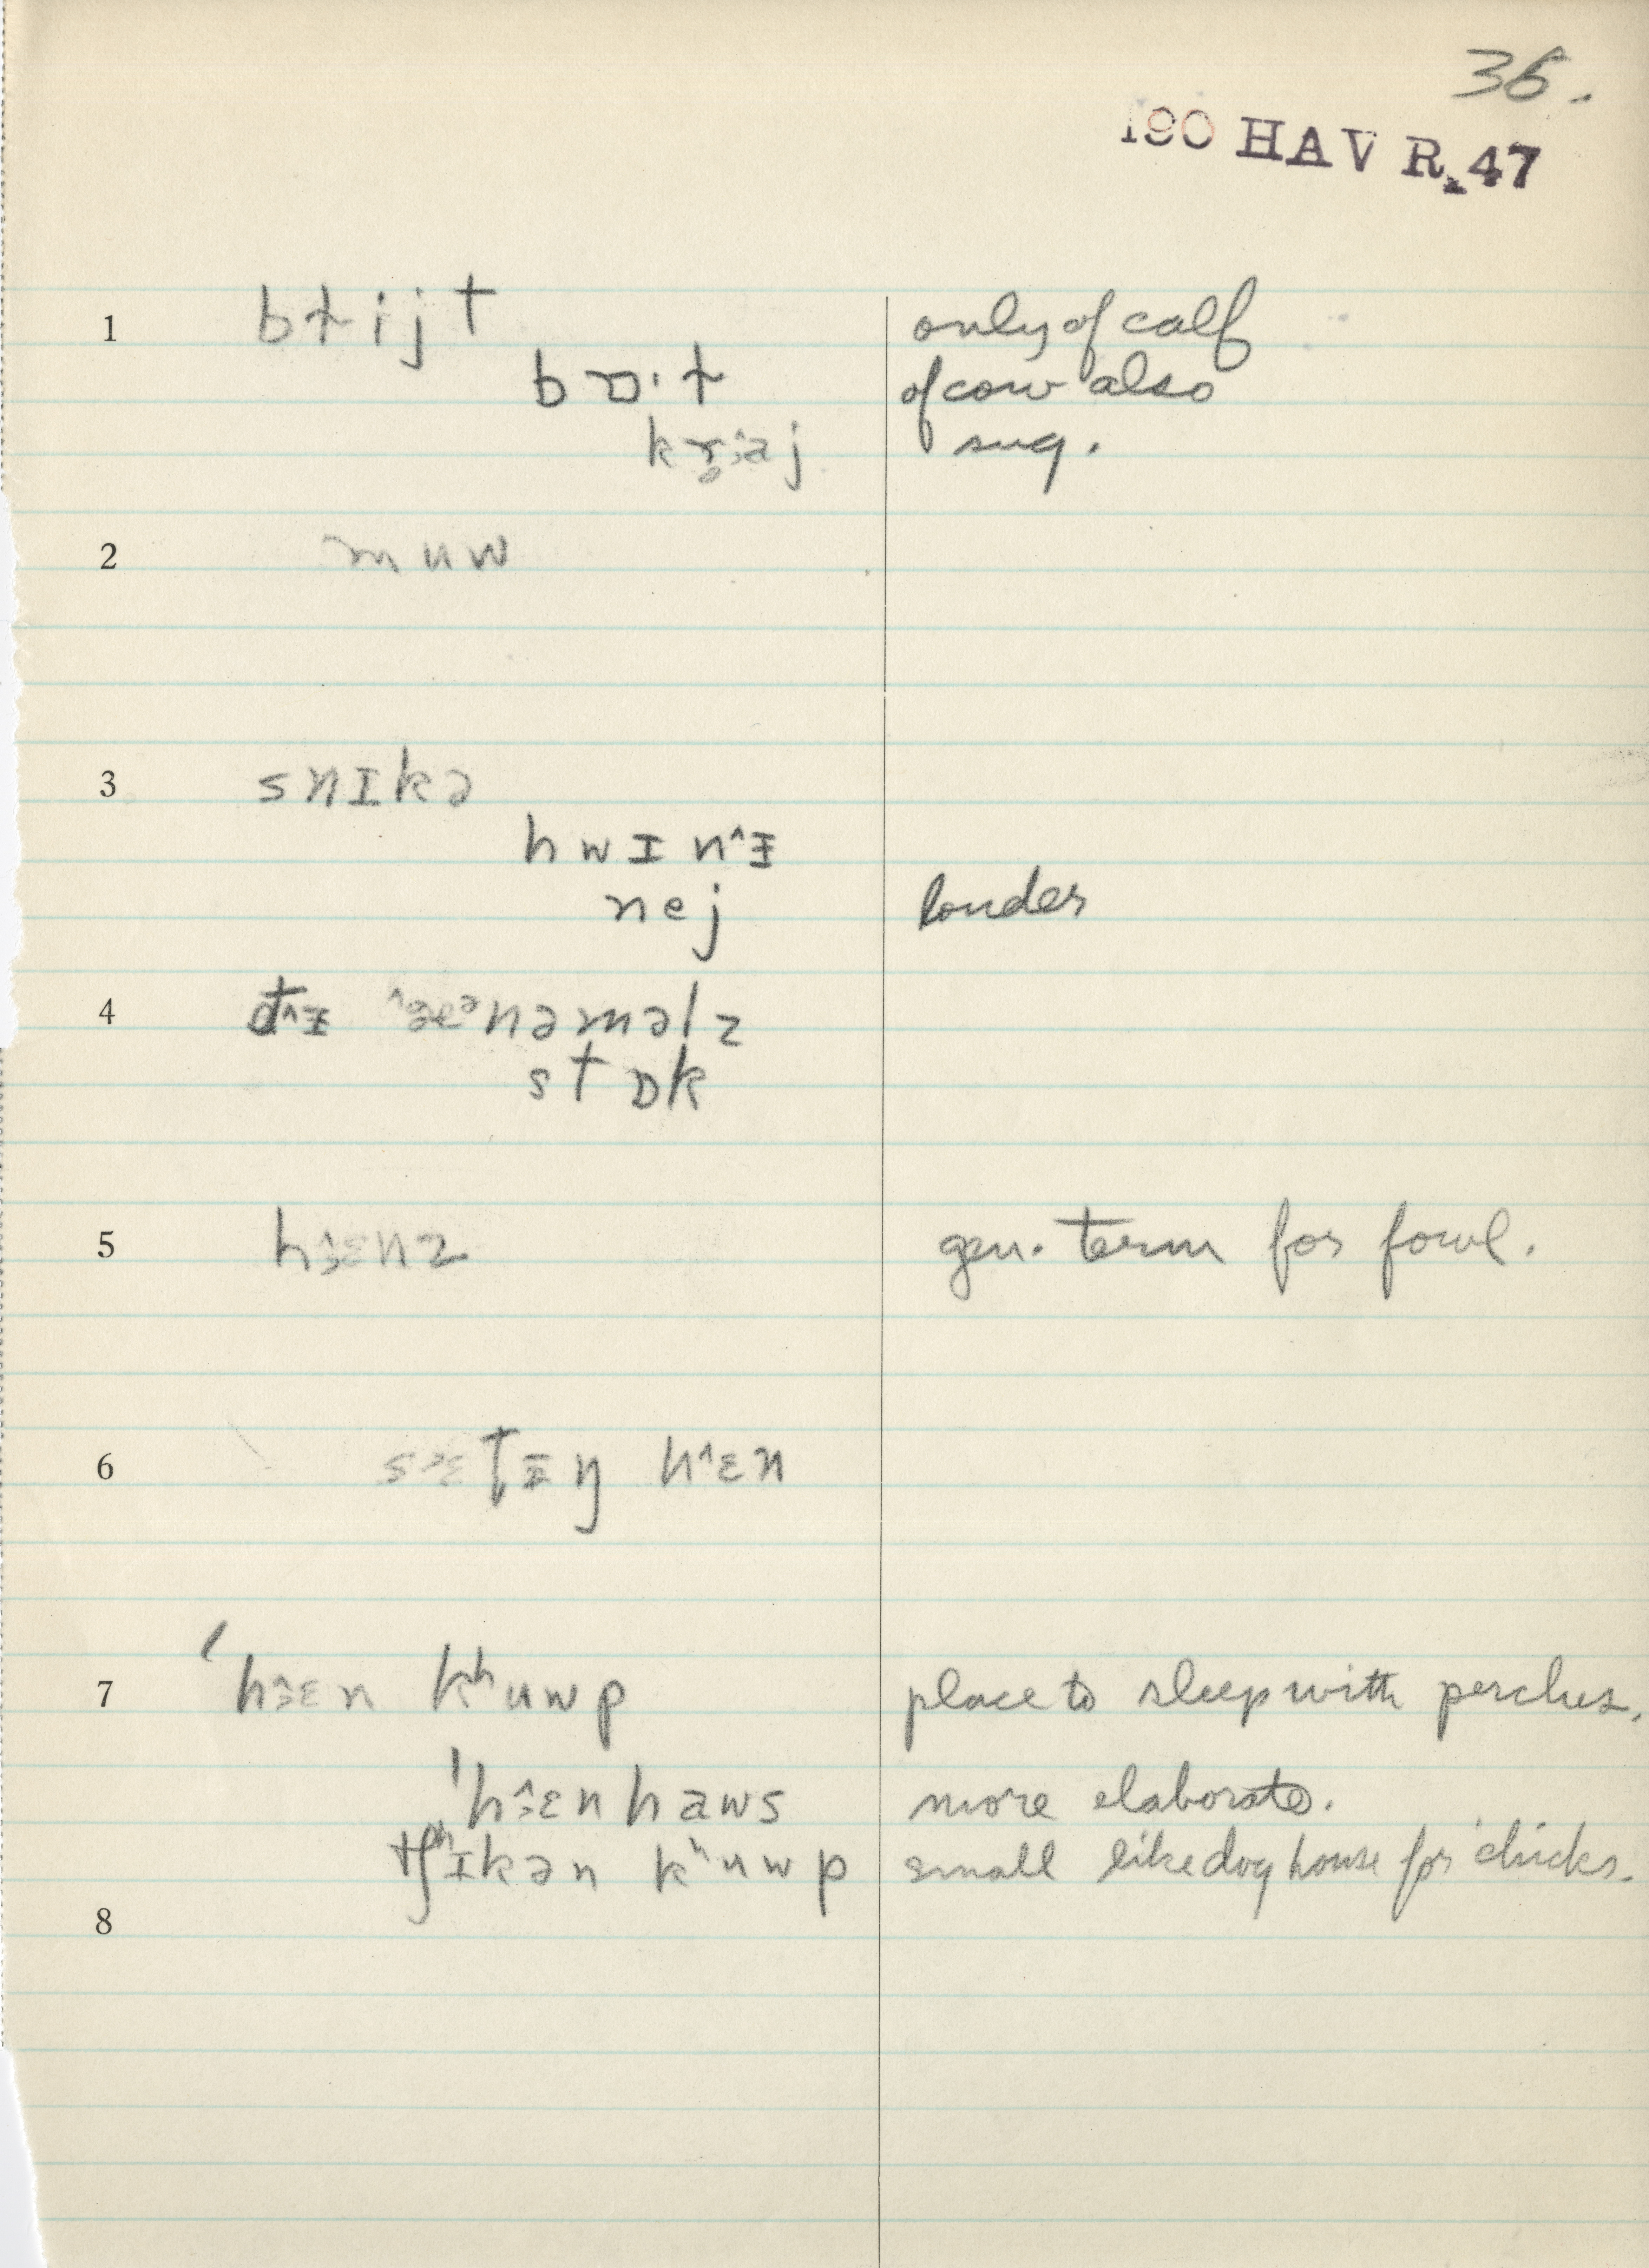 36.
190 HAV R. 47
1 bɫijt only of calf
bɒ·ɫ of cow also
sug.
2 muw
3 snɪkə
hwɪnˆɪ
nej louder
4
stɒk
5 gen. term for fowl.
6 hˆɛn
7 kʰuwp place to sleep with perches.
more elaborate.
tʃʰɪkən kʰuwp small like dog house for chicks.
8